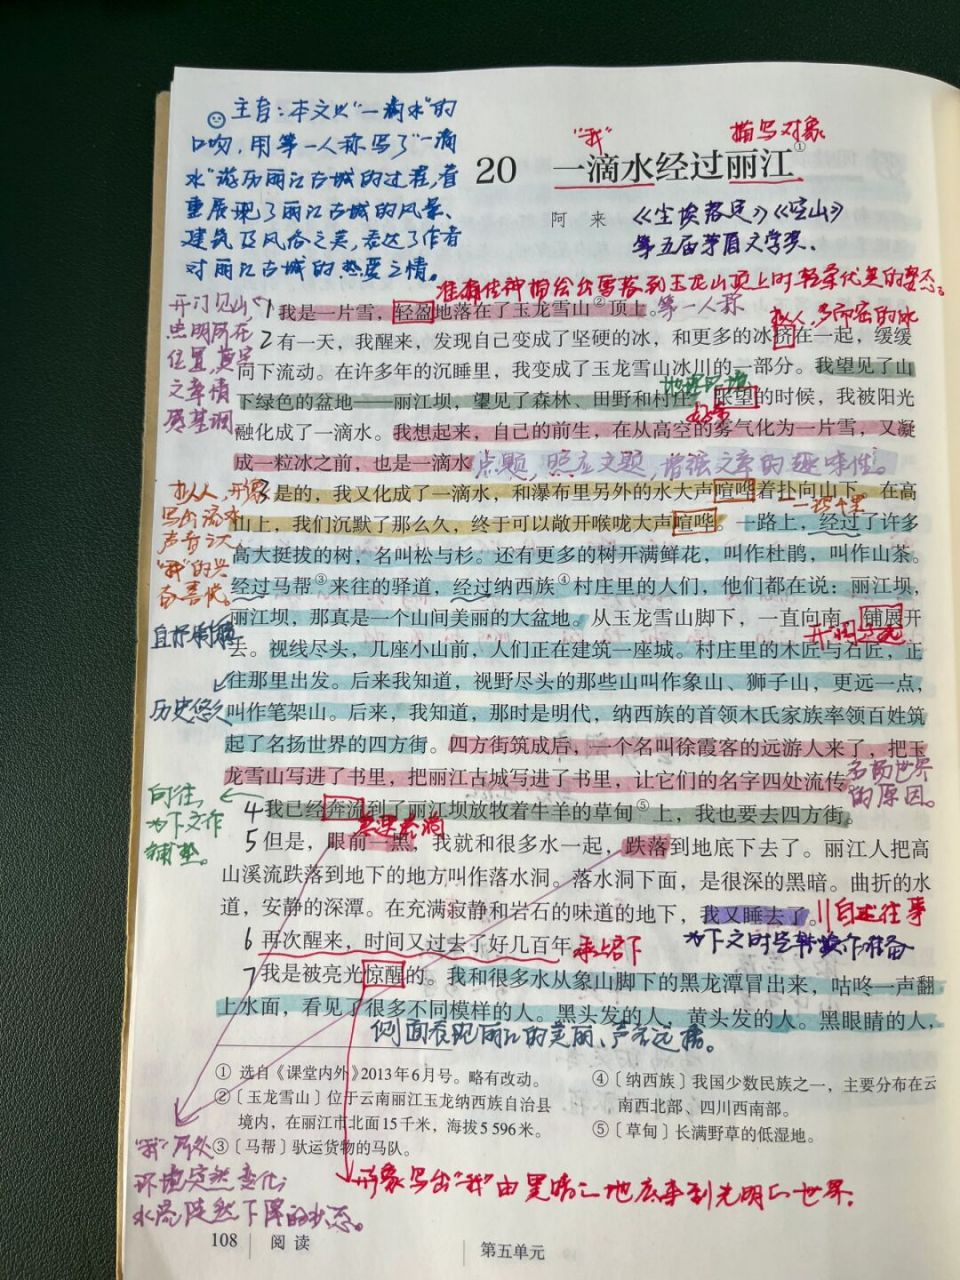 主旨：本文以“一滴水”的
口吻，用第一人称写了“一滴
水”游历丽江古城的过程，着
重展现了丽江古城的风景、
建筑及风俗之美，表达了作者
对丽江古城的热爱之情。
“我”
描写对象
20 一滴水经过丽江①
阿来
《尘埃落定》《空山》
第五届茅盾文学奖、
准确传神描绘出雪落到玉龙山顶上时轻柔优美的姿态。
开门见山
点明所在
位置，奠定
文章情
感基调
1我是一片雪，轻盈地落在了玉龙雪山②顶上。第一人称
拟人，多而密的冰
2有一天，我醒来，发现自己变成了坚硬的冰，和更多的冰挤在一起，缓缓
向下流动。在许多年的沉睡里，我变成了玉龙雪山冰川的一部分。我望见了山
下绿色的盆地——丽江坝，望见了森林、田野和村庄。张望的时候，我被阳光
好奇
融化成了一滴水。我想起来，自己的前生，在从高空的雾气化为一片雪，又凝
成一粒冰之前，也是一滴水。
点题，照应文题，增强文章的趣味性。
拟人，形象
写出流水
声音之大
“我”的兴
奋喜悦。
3是的，我又化成了一滴水，和瀑布里另外的水大声喧哗着扑向山下。在高
山上，我们沉默了那么久，终于可以敞开喉咙大声喧哗。一路上，经过了许多
高大挺拔的树，名叫松与杉。还有更多的树开满鲜花，叫作杜鹃，叫作山茶。
经过马帮③来往的驿道，经过纳西族④村庄里的人们，他们都在说：丽江坝，
丽江坝，那真是一个山间美丽的大盆地。从玉龙雪山脚下，一直向南，铺展开
去。视线尽头，几座小山前，人们正在建筑一座城。村庄里的木匠与石匠，正
往那里出发。后来我知道，视野尽头的那些山叫作象山、狮子山，更远一点，
历史悠久
叫作笔架山。后来，我知道，那时是明代，纳西族的首领木氏家族率领百姓筑
起了名扬世界的四方街。四方街筑成后，一个名叫徐霞客的远游人来了，把玉
龙雪山写进了书里，把丽江古城写进了书里，让它们的名字四处流传。
名扬世界
的原因。
向往，
为下文作
铺垫。
4我已经奔流到了丽江坝放牧着牛羊的草甸⑤上，我也要去四方街。
5但是，眼前一黑，我就和很多水一起，跌落到地底下去了。丽江人把高
山溪流跌落到地下的地方叫作落水洞。落水洞下面，是很深的黑暗。曲折的水
道，安静的深潭。在充满寂静和岩石的味道的地下，我又睡去了。
自述往事
为下文时空转换作准备
6再次醒来，时间又过去了好几百年。承上启下
7我是被亮光惊醒的。我和很多水从象山脚下的黑龙潭冒出来，咕咚一声翻
上水面，看见了很多不同模样的人。黑头发的人，黄头发的人。黑眼睛的人，
侧面表现丽江的美丽、声名远播。
① 选自《课堂内外》2013年6月号。略有改动。
②〔玉龙雪山〕位于云南丽江玉龙纳西族自治县
境内，在丽江市北面15千米，海拔5 596米。
③〔马帮〕驮运货物的马队。
④〔纳西族〕我国少数民族之一，主要分布在云
南西北部、四川西南部。
⑤〔草甸〕长满野草的低湿地。
“我”所处
环境突然变化；
水流陡然下降的状态。
形象写出“我”由黑暗的地底来到光明的世界。
108 阅读
第五单元